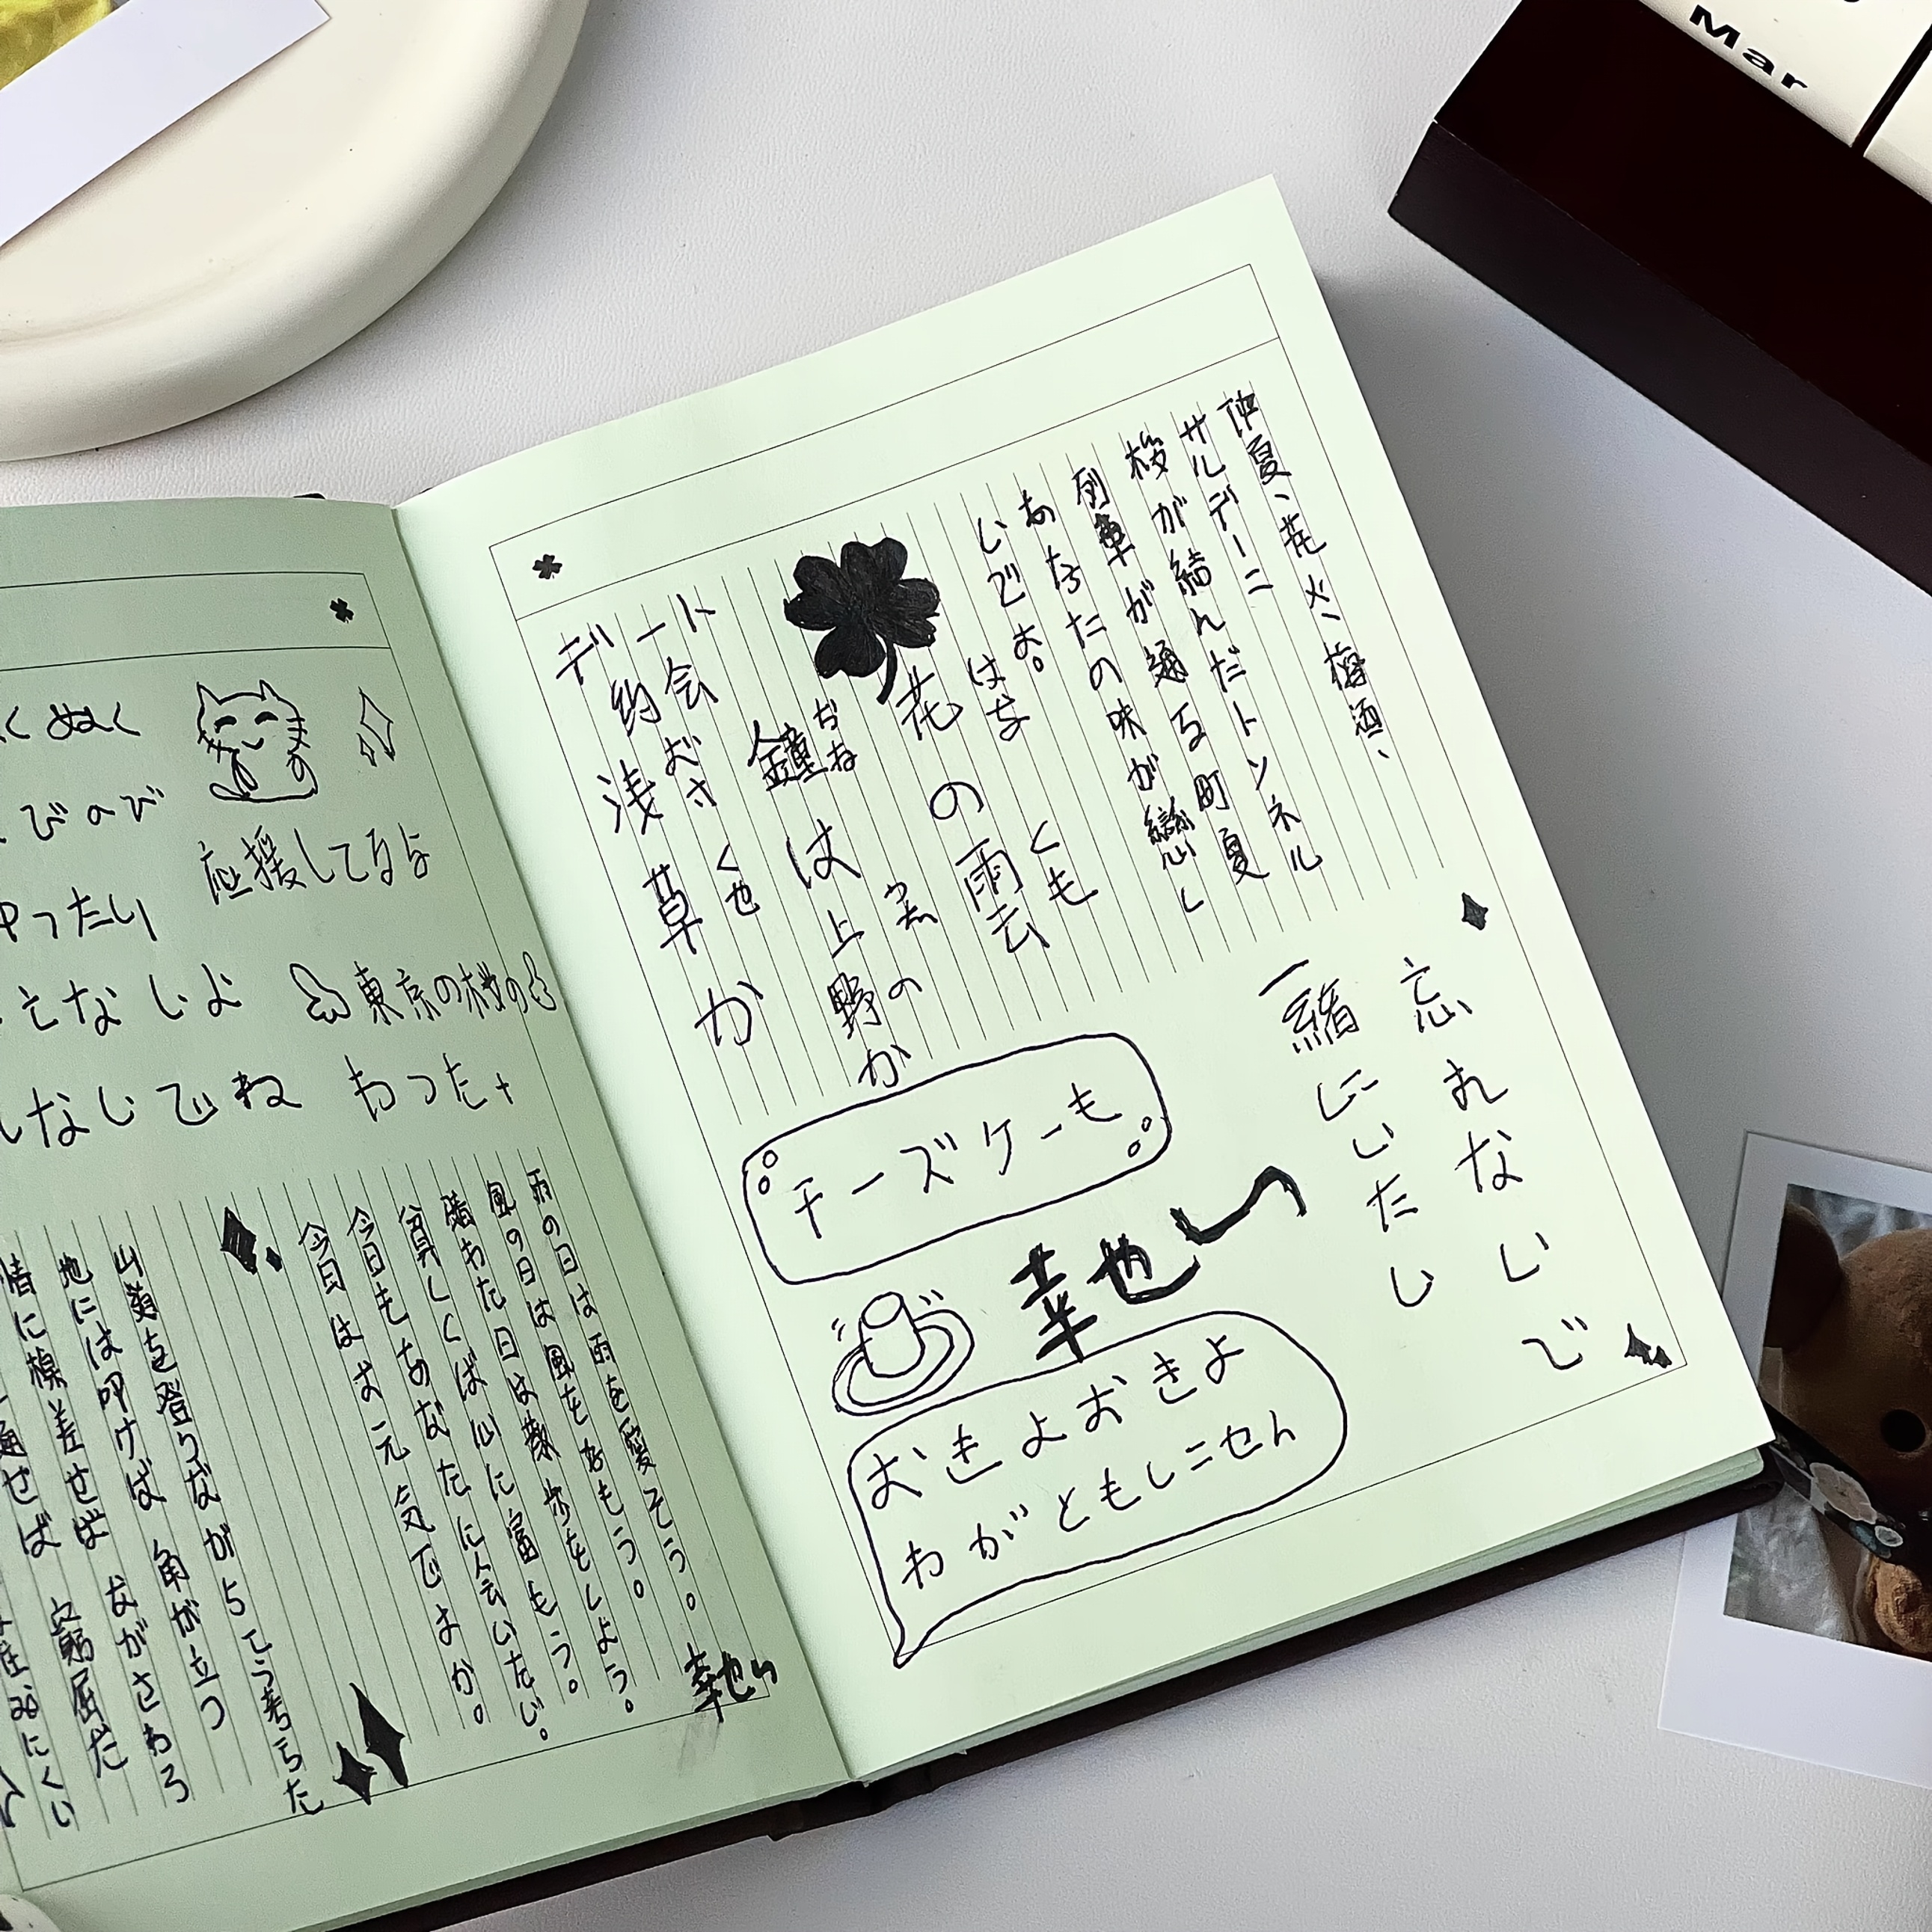 Mar
くぬく
びのび
ゆったり
えなしよ
しなしでね
応援してるよ
東京の桜の
わった
雨の日は雨を愛そう。
風の日は風を
晴れた日は散歩をしよう。
貧しくば心に富もう。
今日もあなたに会いたい。
今日はお元気ですか。
山道を登りながらこう考えた
角が立つ
情に棹差せば ながされる
通せば 窮屈だ
にくい
幸せい
仲夏、花火、梅酒、
サルデーニ
桜が結んだトンネル
列車が通る町夏
あなたの味が戀し
いでよ。
はな くも
花の雲
がね うえの
鐘は上野か
くせ
浅草か
デート
約会
忘れないで
一緒にいたし
チーズケーも
幸せい
おきよおきよ
わがともしニせん